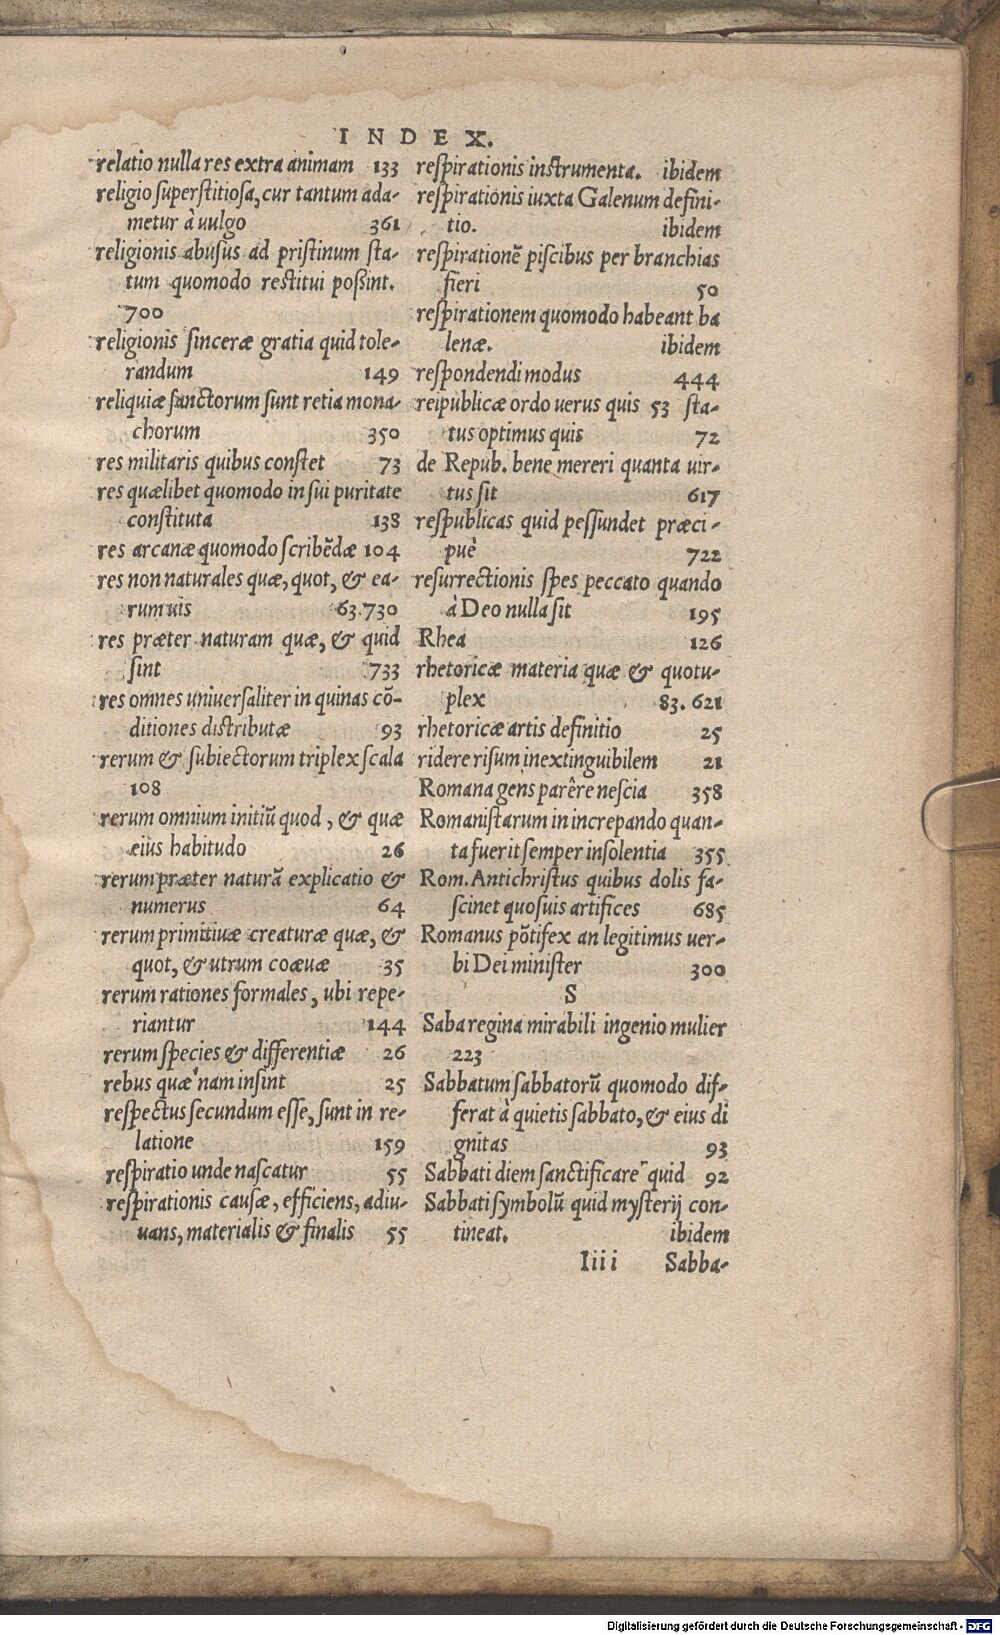 INDEX.
relatio nulla res extra animam 133
religio superstitiosa, cur tantum ada-
metur à uulgo 361
religionis abusus ad pristinum sta-
tum quomodo restitui poßint.
700
religionis sinceræ gratia quid tole-
randum 149
reliquiæ sanctorum sunt retia mona-
chorum 350
res militaris quibus constet 73
res quælibet quomodo in sui puritate
constituta 138
res arcanæ quomodo scribẽdæ 104
res non naturales quæ, quot, & ea-
rum uis 63.730
res præter naturam quæ, & quid
sint 733
res omnes uniuersaliter in quinas cõ-
ditiones distributæ 93
rerum & subiectorum triplex scala
108
rerum omnium initiũ quod, & quæ
eius habitudo 26
rerum præter naturã explicatio &
numerus 64
rerum primitiuæ creaturæ quæ, &
quot, & utrum coæuæ 35
rerum rationes formales, ubi repe-
riantur 144
rerum species & differentiæ 26
rebus quæ nam insint 25
respectus secundum esse, sunt in re-
latione 159
respiratio unde nascatur 55
respirationis causæ, efficiens, adiu-
uans, materialis & finalis 55
respirationis instrumenta. ibidem
respirationis iuxta Galenum defini-
tio. ibidem
respirationẽ piscibus per branchias
fieri 50
respirationem quomodo habeant ba
lenæ. ibidem
respondendi modus 444
reipublicæ ordo uerus quis 53 sta-
tus optimus quis 72
de Repub. bene mereri quanta uir-
tus sit 617
respublicas quid pessundet præci-
puè 722
resurrectionis spes peccato quando
à Deo nulla sit 195
Rhea 126
rhetoricæ materia quæ & quotu-
plex 83. 621
rhetoricæ artis definitio 25
ridere risum inextinguibilem 21
Romana gens parêre nescia 358
Romanistarum in increpando quan-
ta fuerit semper insolentia 355
Rom. Antichristus quibus dolis fa-
scinet quosuis artifices 685
Romanus põtifex an legitimus uer-
bi Dei minister 300
S
Saba regina mirabili ingenio mulier
223
Sabbatum sabbatorũ quomodo dif-
ferat à quietis sabbato, & eius di
gnitas 93
Sabbati diem sanctificare quid 92
Sabbati symbolũ quid mysterij con-
tineat. ibidem
Iiii Sabba-
Digitalisierung gefördert durch die Deutsche Forschungsgemeinschaft - DFG